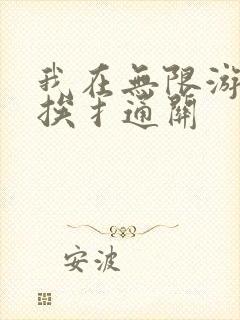 我在無限游
挨扌通關
安波